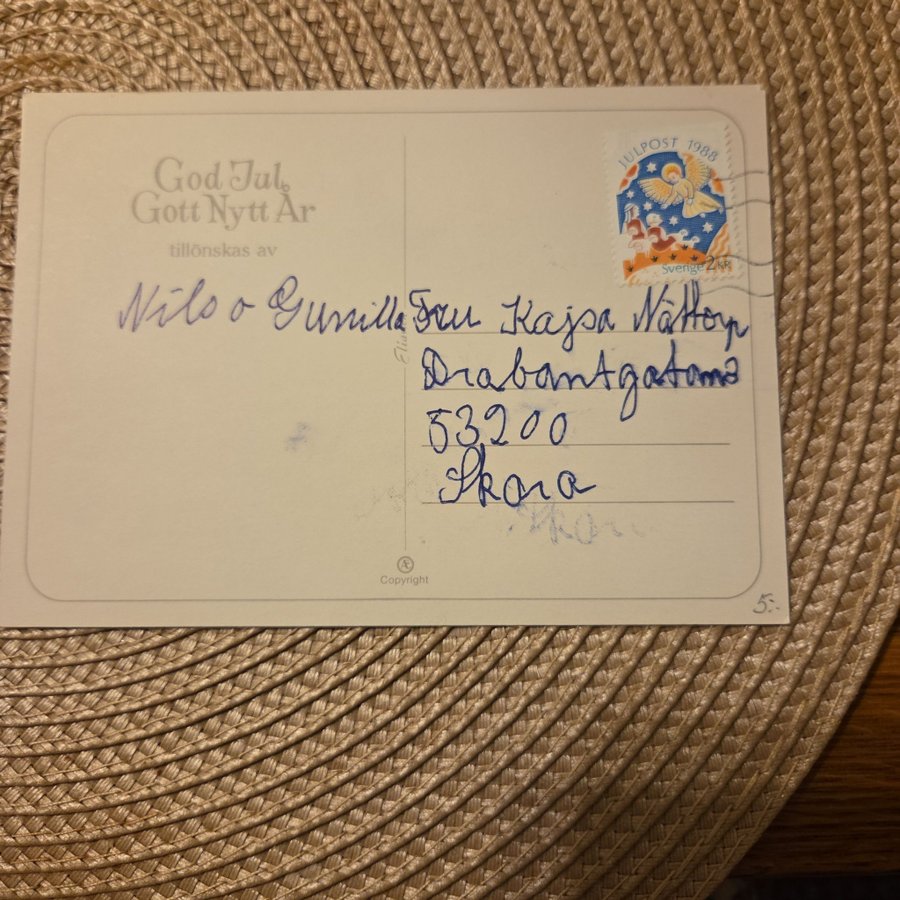 God Jul
Gott Nytt År
tillönskas av
Nils o Gunilla
JULPOST 1988
Sverige 2 KR
Fru Kajsa Nättorp
Drabantgatan 3
53200
Skara
Skara
Copyright
5:-